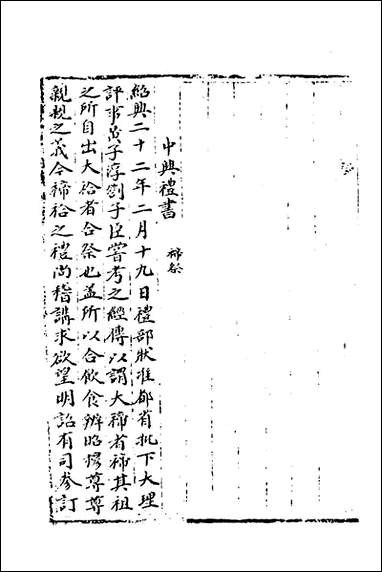 中興禮書　禘祭
紹興二十二年二月十九日禮部狀准都省批下大理
評事黃子淳劄子臣嘗考之經傳以謂大禘者禘其祖
之所自出大祫者合祭也盖所以合飲食辨昭穆尊尊
親親之義今禘祫之禮尚稽講求欲望明詔有司參訂